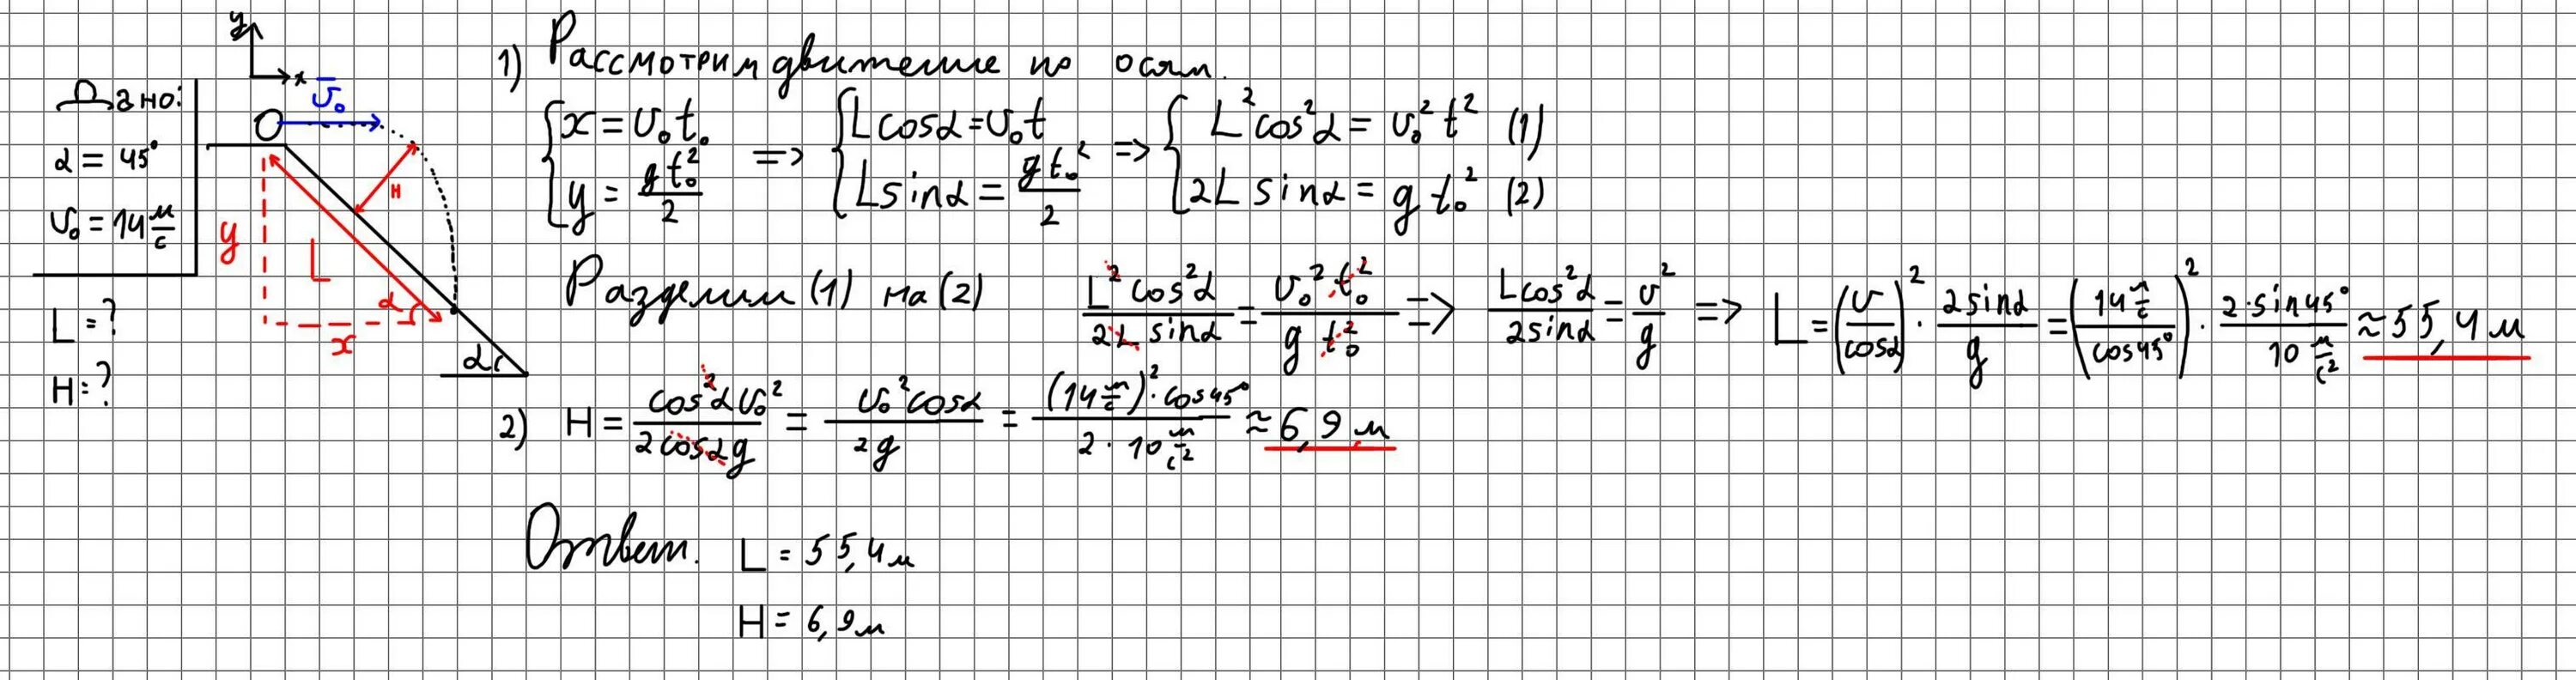 Дано:
α = 45°
υ₀ = 14 м/с
L = ?
H = ?
y
x
υ₀
H
y
L
α
x
α
1) Рассмотрим движение по осям.
{x = υ₀t₀ ; y = gt₀²/2 => {Lcosα = υ₀t ; Lsinα = gt₀²/2 => {L²cos²α = υ₀²t² (1) ; 2L sinα = g t₀² (2)
Разделим (1) на (2) L²cos²α/2L sinα = υ₀²·t₀²/g t₀² => Lcos²α/2sinα = υ²/g => L = (υ/cosα)² · 2sinα/g = (14 м/с/cos45°)² · 2·sin45°/10 м/с² ≈ 55,4 м
2) H = cos²α υ₀²/2cosαg = υ₀²cosα/2g = (14 м/с)²·cos45°/2·10 м/с² ≈ 6,9 м
Ответ. L = 55,4 м
H = 6,9 м